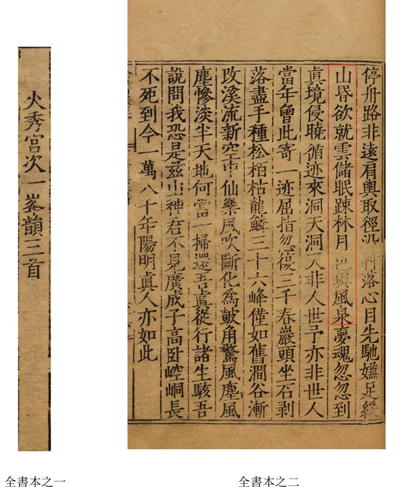 火秀宮次一峯韻三首
停舟路非遠肩輿取徑沉落心目先馳嬉足經
山昏欲就雲儲眠疎林月與風泉夢魂忽忽到
眞境侵曉循迹來洞天洞人非人世予亦非世人
當年曾此寄一迹屈指忽復三千春巖頭坐石剥
落盡手種松柏枯龍鱗三十六峰僅如舊澗谷漸
改溪流新空中仙樂風吹斷化為鼓角驚風塵風
塵慘淡半天地何當一掃還吾眞從行諸生駭吾
說問我恐是兹山神君不見廣成子高卧崆峒長
不死到今一萬八十年陽明眞人亦如此
全書本之一
全書本之二